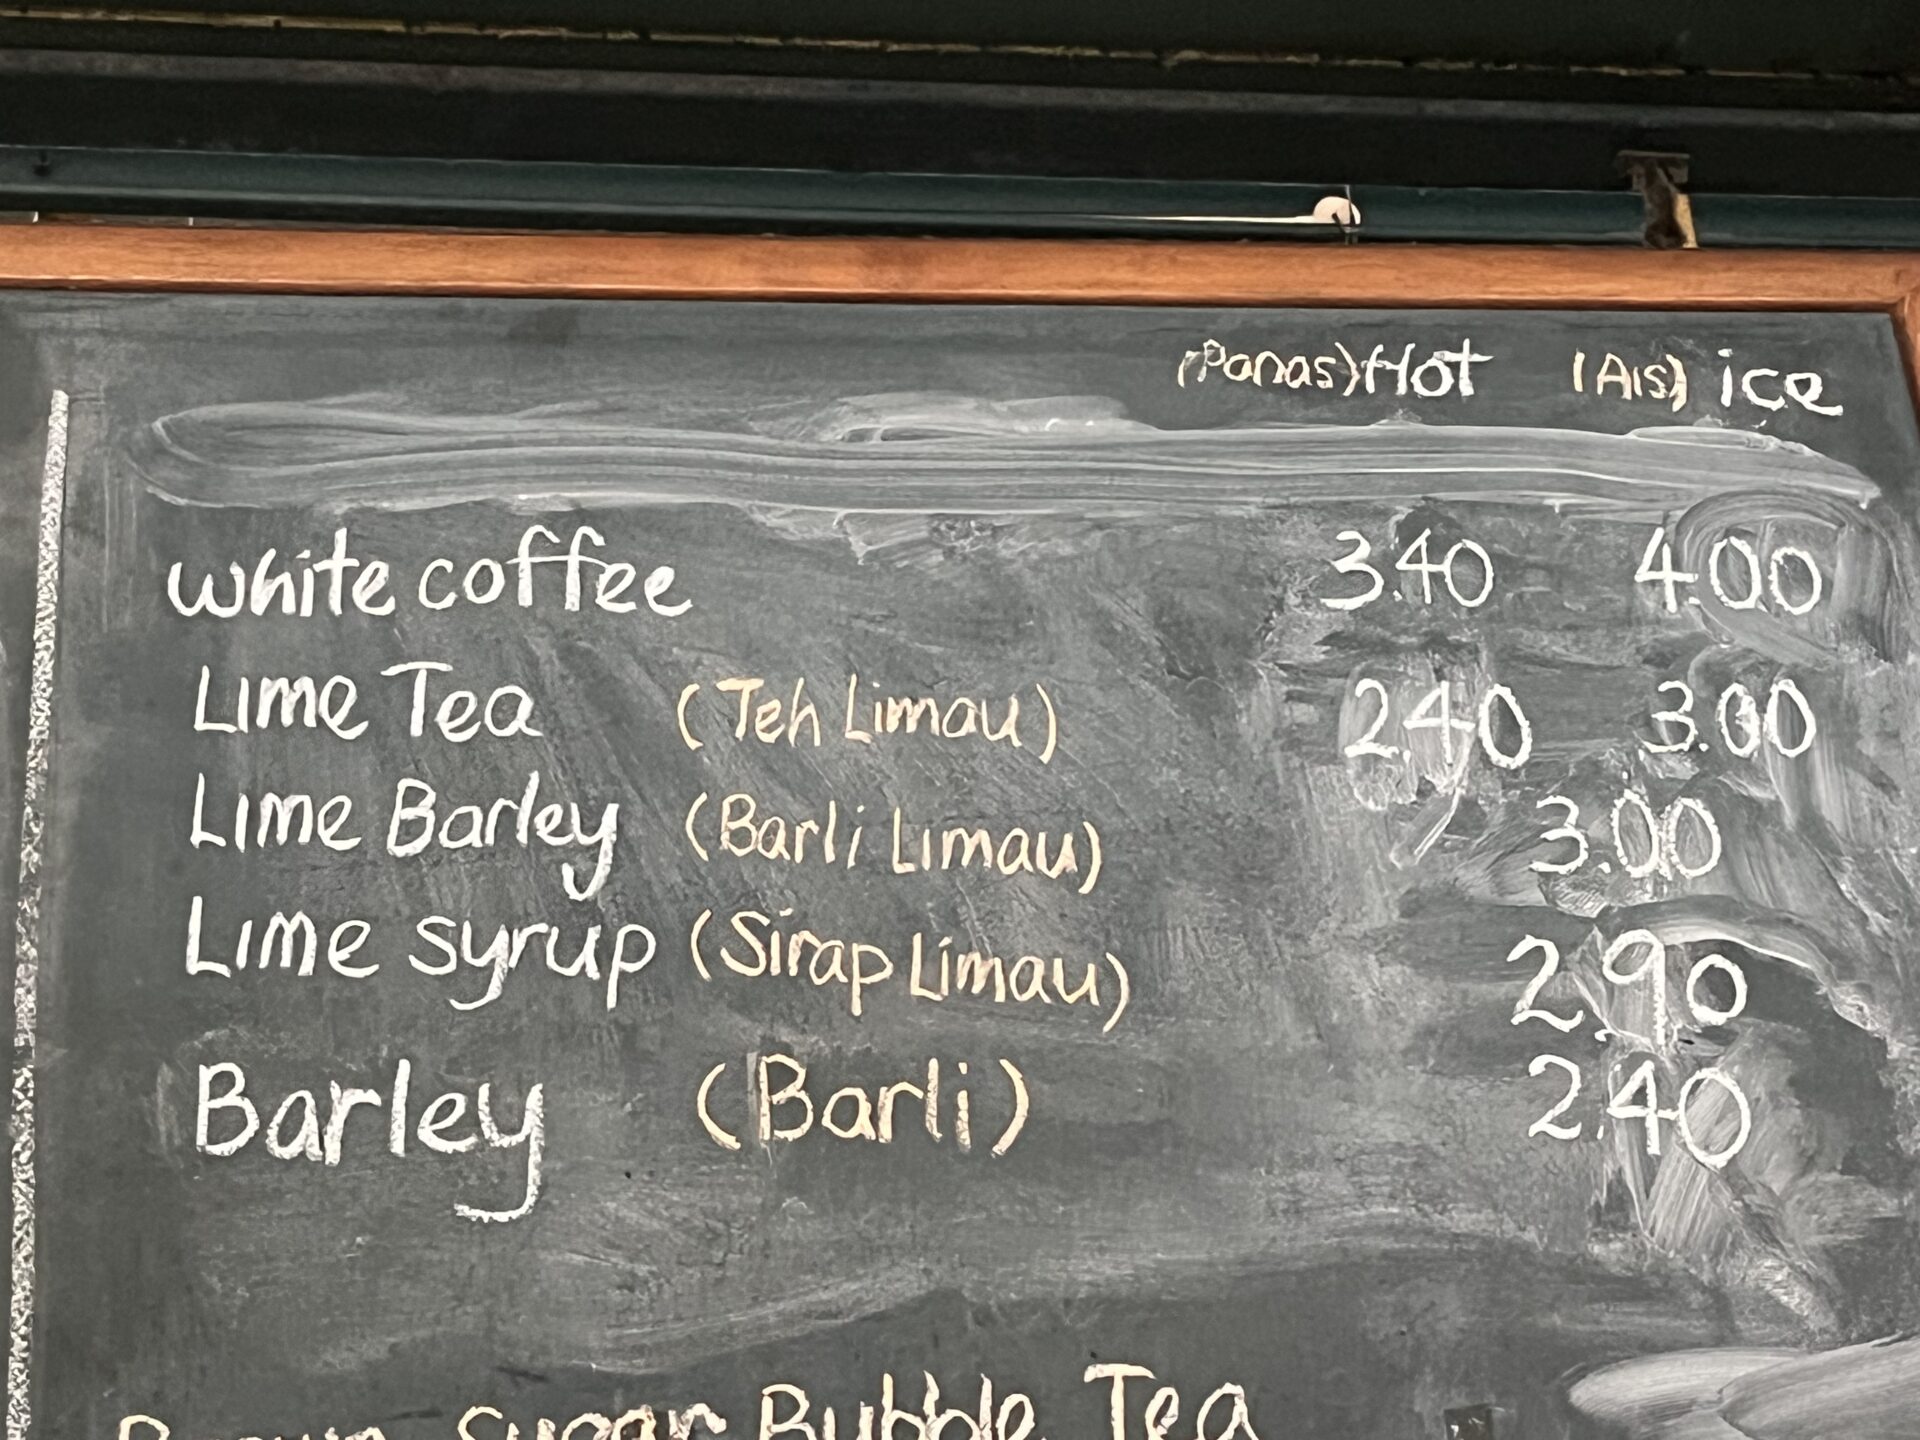 (Panas) Hot (Ais) ice
white coffee 3.40 4.00
Lime Tea (Teh Limau) 2.40 3.00
Lime Barley (Barli Limau) 3.00
Lime syrup (Sirap Limau) 2.90
Barley (Barli) 2.40
Brown Sugar Bubble Tea